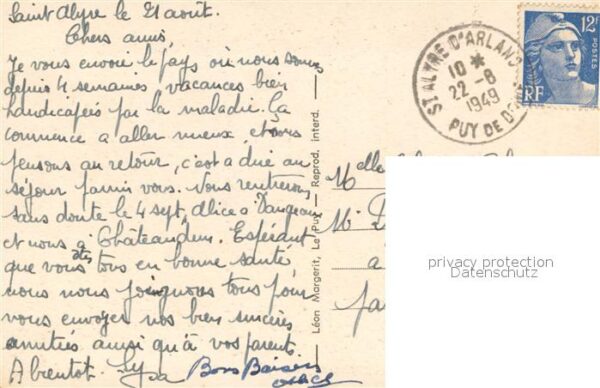 Saint Alyre le 21 août.
Chers amis,
Je vous envoie le pays où nous sommes
depuis 4 semaines vacances bien
handicapées par la maladie. Ça
commence a aller mieux, et nous
pensons au retour, c'est a dire au
séjour parmi vous. Nous rentrerons
sans doute le 4 sept, Alice a Dangeau
et nous a Châteaudun. Espérant
que vous êtes tous en bonne santé
nous nous joignons tous pour
vous envoyer nos bien sincères
amitiés ainsi qu'à vos parents.
A bientot.
Bons Baisers
Léon Margerit, Le Puy — Reprod. interd.
ST ALYRE D'ARLANC
10 *
22 - 8
1949
PUY DE DOME
12F
POSTES
RF
Melle
M.
a
privacy protection
Datenschutz